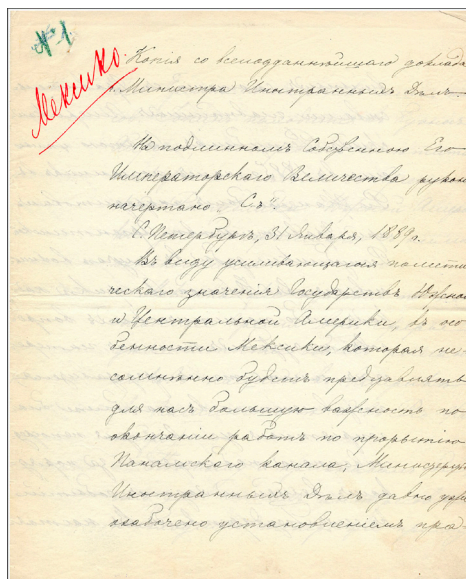 № 1.
Мексико
Копія со всеподданнѣйшаго доклада
Министра Иностранныхъ Дѣлъ.
На подлинномъ Собственною Его
Императорскаго Величества рукою
начертано: „Съ“.
С. Петербургъ, 31 Января, 1889 г.
Въ виду усиливающагося полити-
ческаго значенія Государствъ Южной
и Центральной Америки, въ осо
бенности Мексики, которая не
сомнѣнно будетъ представлять
для насъ большую важность по
окончаніи работъ по прорытію
Панамскаго канала, Министерство
Иностранныхъ Дѣлъ давно уже
озабочено установленіемъ пра-